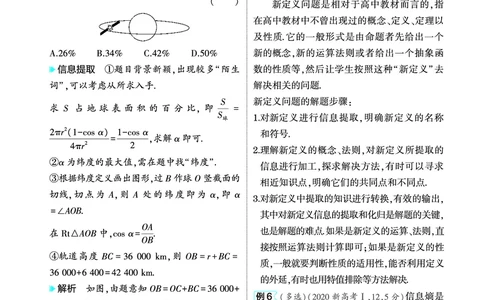 (    )
A.26%  B.34%  C.42%  D.50%
▶信息提取  ①题目背景新颖,出现较多“陌生
词”,可以考虑从所求入手.
求 S 占地球表面积的百分比, 即 S/S球 =
2πr²(1-cos α)/4πr² = (1-cos α)/2 ,求解 α 即可.
②α 为纬度的最大值,需在题中找“纬度”.
③根据纬度定义画出图形,过 B 作球 O 竖截面的
切线, 切点为 A, 则 A 处的纬度即为 α, 即 α
=∠AOB.
在 Rt△AOB 中,cos α= OA/OB.
④轨道高度 BC=36 000 km, 则 OB=r+BC=
36 000+6 400=42 400 km.
▶解析  如图,由题意知 OB=OC+BC=36 000+
新定义问题是相对于高中教材而言的,指
在高中教材中不曾出现过的概念、定义、定理以
及性质.它的一般形式是由命题者先给出一个
新的概念,新的运算法则或者给出一个抽象函
数的性质等,然后让学生按照这种“新定义”去
解决相关的问题.
新定义问题的解题步骤:
1.对新定义进行信息提取,明确新定义的名称
和符号.
2.理解新定义的概念、法则,对新定义所提取的
信息进行加工,探求解决方法,有时可以寻求
相近知识点,明确它们的共同点和不同点.
3.对新定义中提取的知识进行转换,有效的输出,
其中对新定义信息的提取和化归是解题的关键,
也是解题的难点.如果是新定义的运算、法则,直
接按照运算法则计算即可;如果是新定义的性
质,一般就要判断性质的适用性,能否利用定义
的外延,有时也用特值排除等方法解决.
例6  (多选)(2020新高考Ⅰ,12,5分)信息熵是